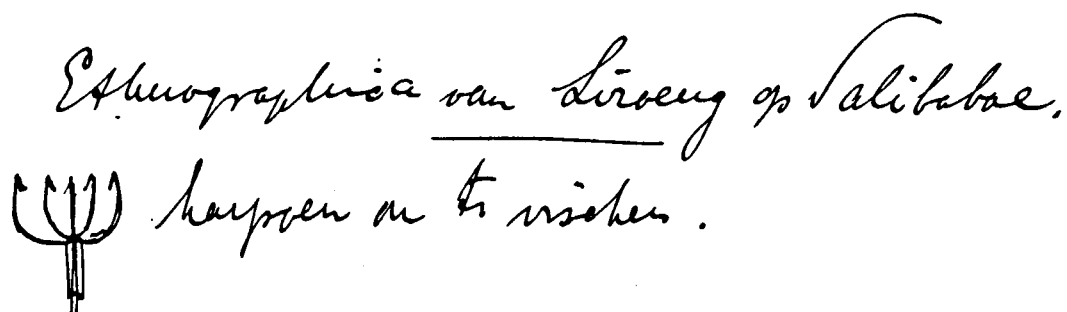 Ethnographica van Liroeng op Salibaboe.
harpoen om te visschen.